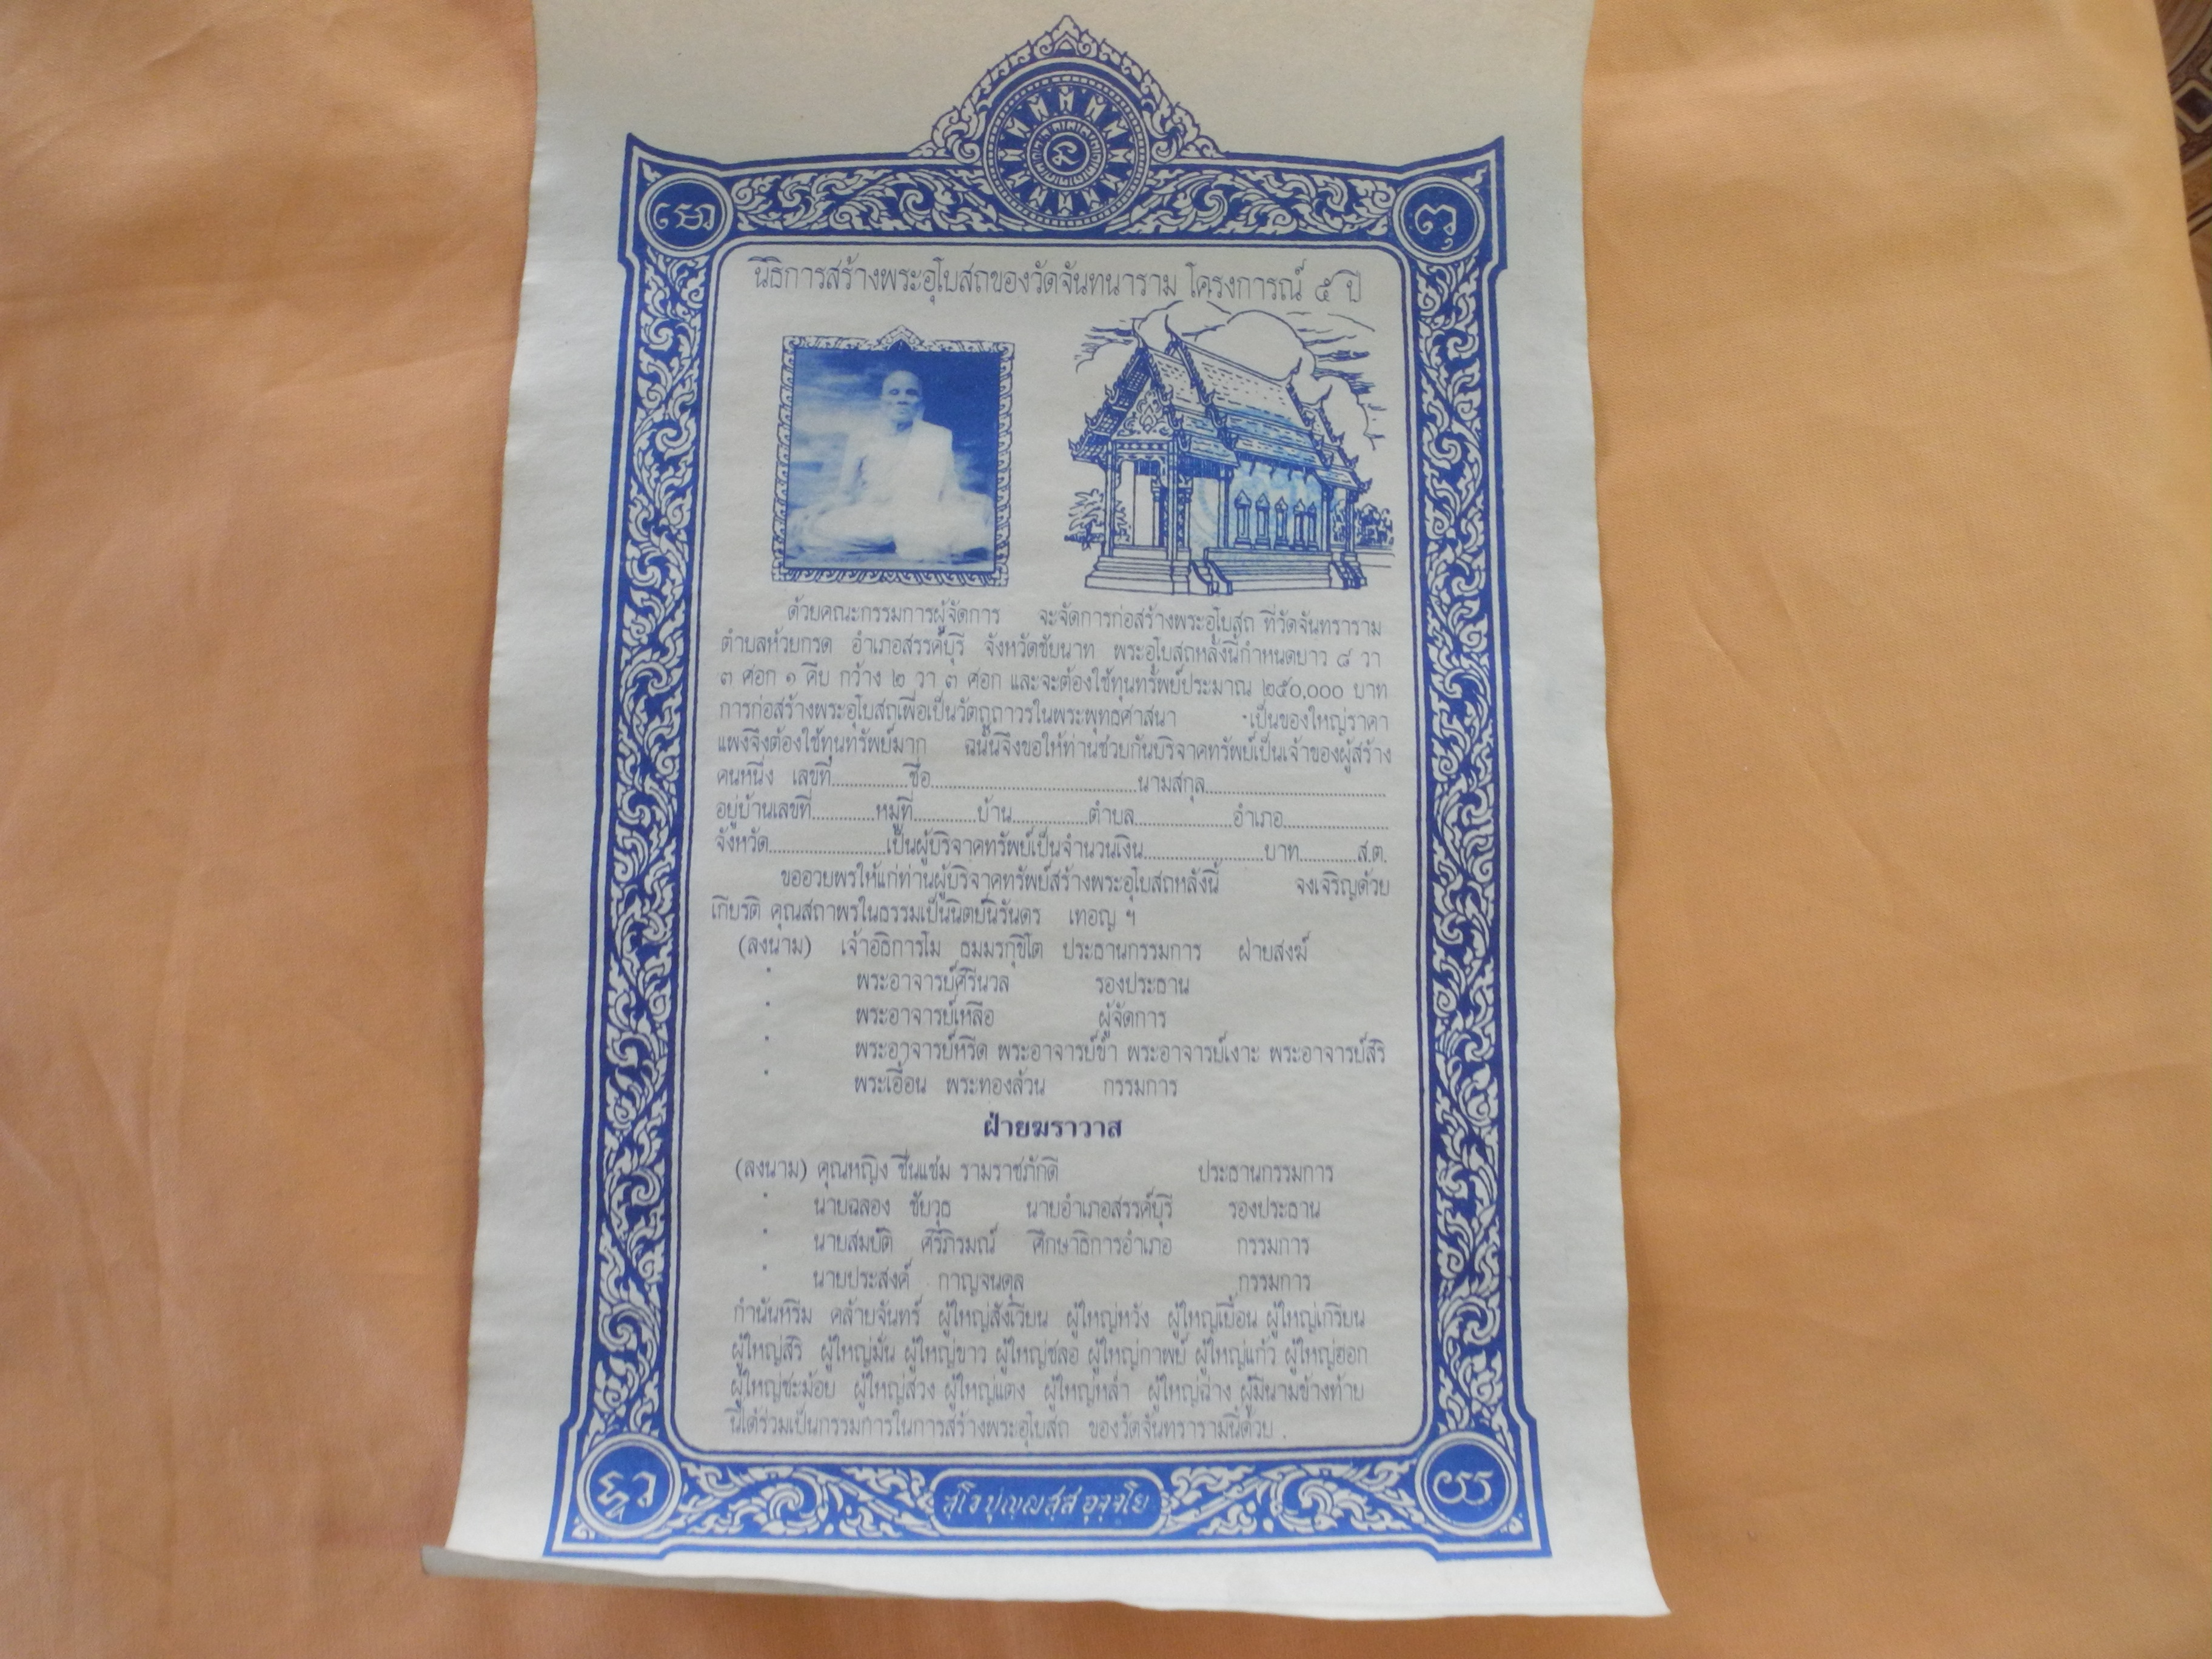 นิธิการสร้างพระอุโบสถของวัดจันทนาราม โครงการณ์ ๕ ปี
ด้วยคณะกรรมการผู้จัดการ จะจัดการก่อสร้างพระอุโบสถ ที่วัดจันทราราม
ตำบลห้วยกรด อำเภอสรรค์บุรี จังหวัดชัยนาท พระอุโบสถหลังนี้กำหนดยาว ๘ วา
๓ ศอก ๑ คืบ กว้าง ๒ วา ๓ ศอก และจะต้องใช้ทุนทรัพย์ประมาณ ๒๕๐,๐๐๐ บาท
การก่อสร้างพระอุโบสถเพื่อเป็นวัตถุถาวรในพระพุทธศาสนา เป็นของใหญ่ราคา
แพงจึงต้องใช้ทุนทรัพย์มาก ฉนั้นจึงขอให้ท่านช่วยกันบริจาคทรัพย์เป็นเจ้าของผู้สร้าง
คนหนึ่ง เลขที่............ชื่อ................................นามสกุล............................
อยู่บ้านเลขที่..........หมู่ที่..........บ้าน............ตำบล...............อำเภอ.................
จังหวัด..................เป็นผู้บริจาคทรัพย์เป็นจำนวนเงิน...................บาท.........ส.ต.
ขออวยพรให้แก่ท่านผู้บริจาคทรัพย์สร้างพระอุโบสถหลังนี้ จงเจริญด้วย
เกียรติ คุณสถาพรในธรรมเป็นนิตย์นิรันดร เทอญ ฯ
(ลงนาม) เจ้าอธิการโม ธมมรกฺขิโต ประธานกรรมการ ฝ่ายสงฆ์
" พระอาจารย์ศรีนวล รองประธาน
" พระอาจารย์เหลือ ผู้จัดการ
" พระอาจารย์หรีด พระอาจารย์ขำ พระอาจารย์เงาะ พระอาจารย์สิริ
" พระเอื้อน พระทองล้วน กรรมการ
ฝ่ายฆราวาส
(ลงนาม) คุณหญิง ชื่นแช่ม รามราชภักดี ประธานกรรมการ
" นายฉลอง ชัยวุธ นายอำเภอสรรค์บุรี รองประธาน
" นายสมบัติ ศิริภิรมณ์ ศึกษาธิการอำเภอ กรรมการ
" นายประสงค์ กาญจนดุล กรรมการ
กำนันหริม คล้ายจันทร์ ผู้ใหญ่สังเวียน ผู้ใหญ่หวัง ผู้ใหญ่เยื้อน ผู้ใหญ่เกรียน
ผู้ใหญ่สิริ ผู้ใหญ่มั่น ผู้ใหญ่ขาว ผู้ใหญ่ชลอ ผู้ใหญ่กาพย์ ผู้ใหญ่แก้ว ผู้ใหญ่ฮอก
ผู้ใหญ่ชะม้อย ผู้ใหญ่สรวง ผู้ใหญ่แตง ผู้ใหญ่หล่ำ ผู้ใหญ่ฉ่าง ผู้มีนามข้างท้าย
นี้ได้ร่วมเป็นกรรมการในการสร้างพระอุโบสถ ของวัดจันทรารามนี้ด้วย .
สุโข ปุญฺญสฺส อุจฺจโย